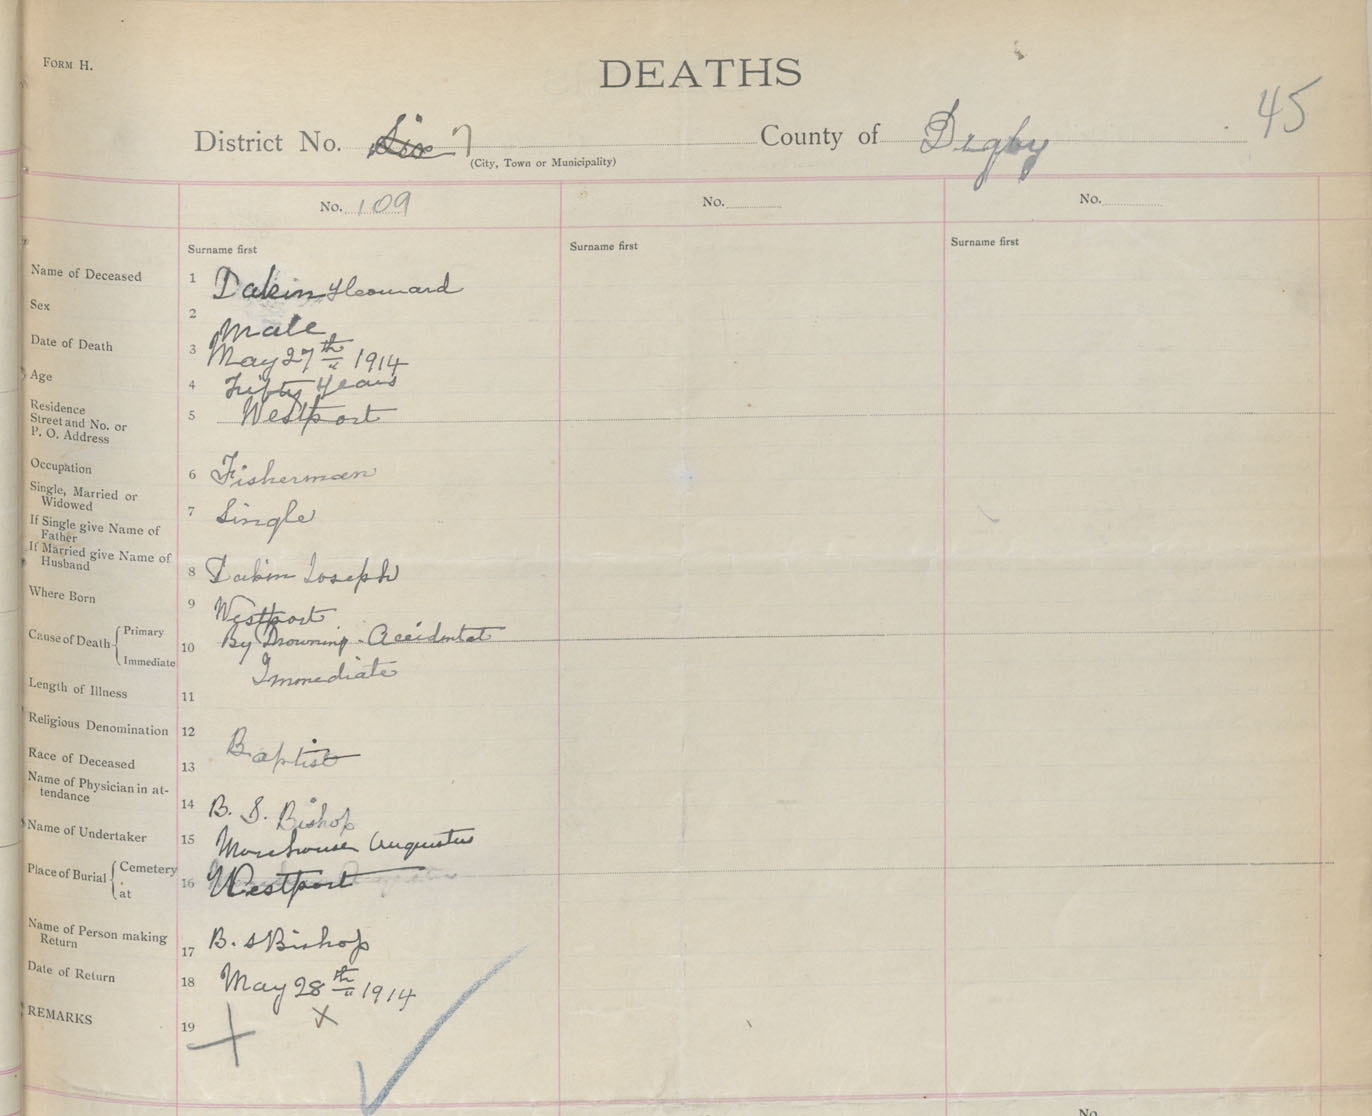 FORM H.
DEATHS
45
District No. Six 7 County of Digby
(City, Town or Municipality)
No. 109 No. No.
Surname first Surname first Surname first
Name of Deceased 1 Dakin Heonard
Sex 2 Male
Date of Death 3 May 27th 1914
Age 4 Fifty Years
Residence
Street and No. or
P. O. Address 5 Westport
Occupation 6 Fisherman
Single, Married or
Widowed 7 Single
If Single give Name of
Father
If Married give Name of
Husband 8 Dakin Joseph
Where Born 9 Westport
Cause of Death { Primary 10 By Drowning - Accidental
Immediate Immediate
Length of Illness 11
Religious Denomination 12 Baptist
Race of Deceased 13
Name of Physician in at-
tendance 14 B. S. Bishop
Name of Undertaker 15 Morehouse Augustus
Place of Burial { Cemetery 16 Westport
at
Name of Person making
Return 17 B. S Bishop
Date of Return 18 May 28th 1914
REMARKS 19
No.